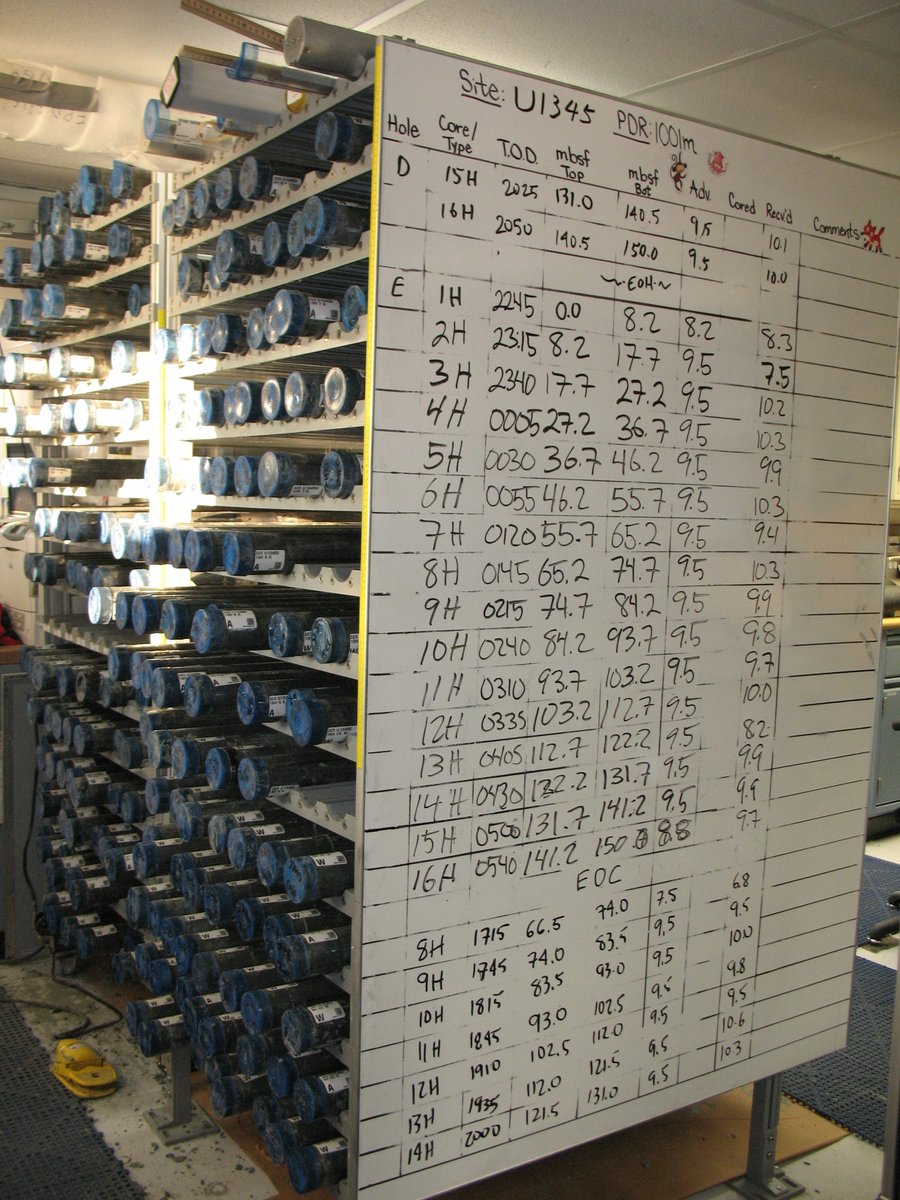 Site: U1345 PDR: 1001m
Hole Core/Type T.O.D. mbsf Top mbsf Bot Adv. Cored Recv'd Comments
D 15H 2025 131.0 140.5 9.5 10.1
16H 2050 140.5 150.0 9.5 10.0
~EOH~
E 1H 2245 0.0 8.2 8.2 8.3
2H 2315 8.2 17.7 9.5 7.5
3H 2340 17.7 27.2 9.5 10.2
4H 0005 27.2 36.7 9.5 10.3
5H 0030 36.7 46.2 9.5 9.9
6H 0055 46.2 55.7 9.5 10.3
7H 0120 55.7 65.2 9.5 9.4
8H 0145 65.2 74.7 9.5 10.3
9H 0215 74.7 84.2 9.5 9.9
10H 0240 84.2 93.7 9.5 9.8
11H 0310 93.7 103.2 9.5 9.7
12H 0335 103.2 112.7 9.5 10.0
13H 0405 112.7 122.2 9.5 8.2
14H 0430 122.2 131.7 9.5 9.9
15H 0506 131.7 141.2 9.5 9.9
16H 0540 141.2 150.0 8.8 9.7
EOC
8H 1715 66.5 74.0 7.5 6.8
9H 1745 74.0 83.5 9.5 9.5
10H 1815 83.5 93.0 9.5 10.0
11H 1845 93.0 102.5 9.5 9.8
12H 1910 102.5 112.0 9.5 9.5
13H 1935 112.0 121.5 9.5 10.6
14H 2000 121.5 131.0 9.5 10.3